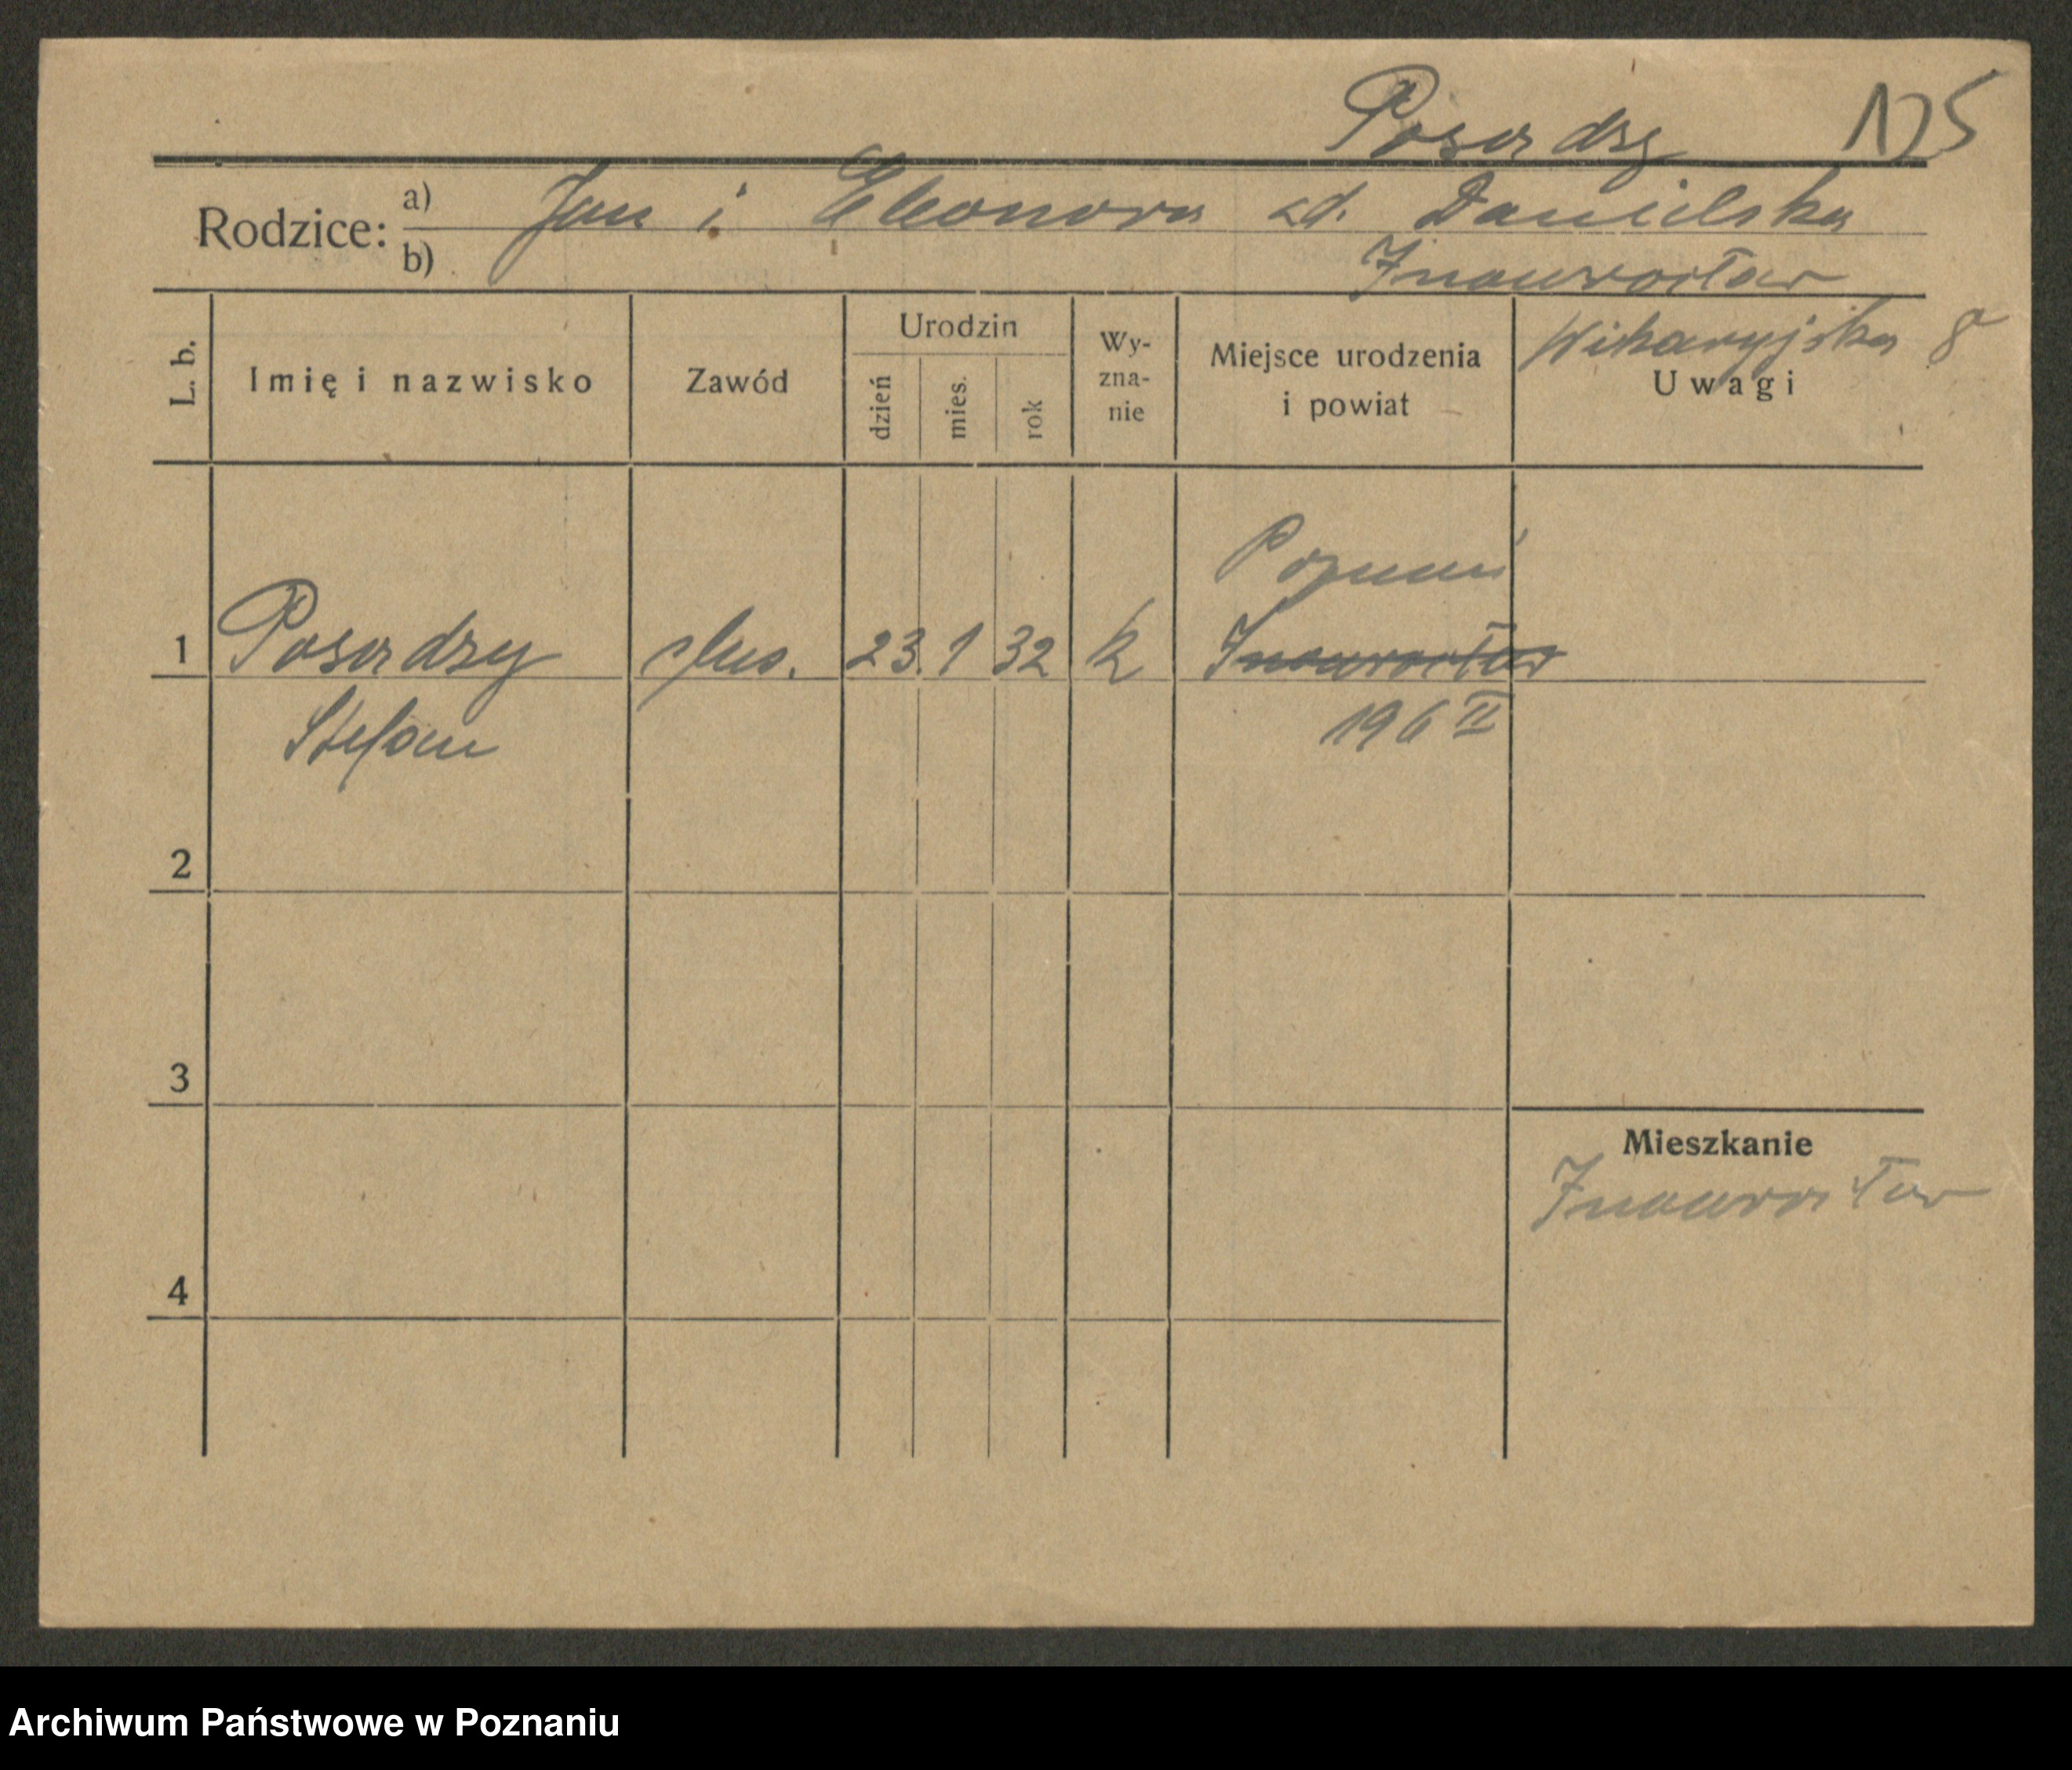 Posadzy 125
Rodzice: a) Jan i Eleonora zd. Danielska
b) Inowrocław
Wikaryjska 8
L. b. Imię i nazwisko Zawód Urodzin dzień mies. rok Wy-zna-nie Miejsce urodzenia i powiat Uwagi
Poznań
1 Posadzy ślus. 23. 1 32 k Inowrocław
Stefan 196 II
2
3
Mieszkanie
Inowrocław
4
Archiwum Państwowe w Poznaniu